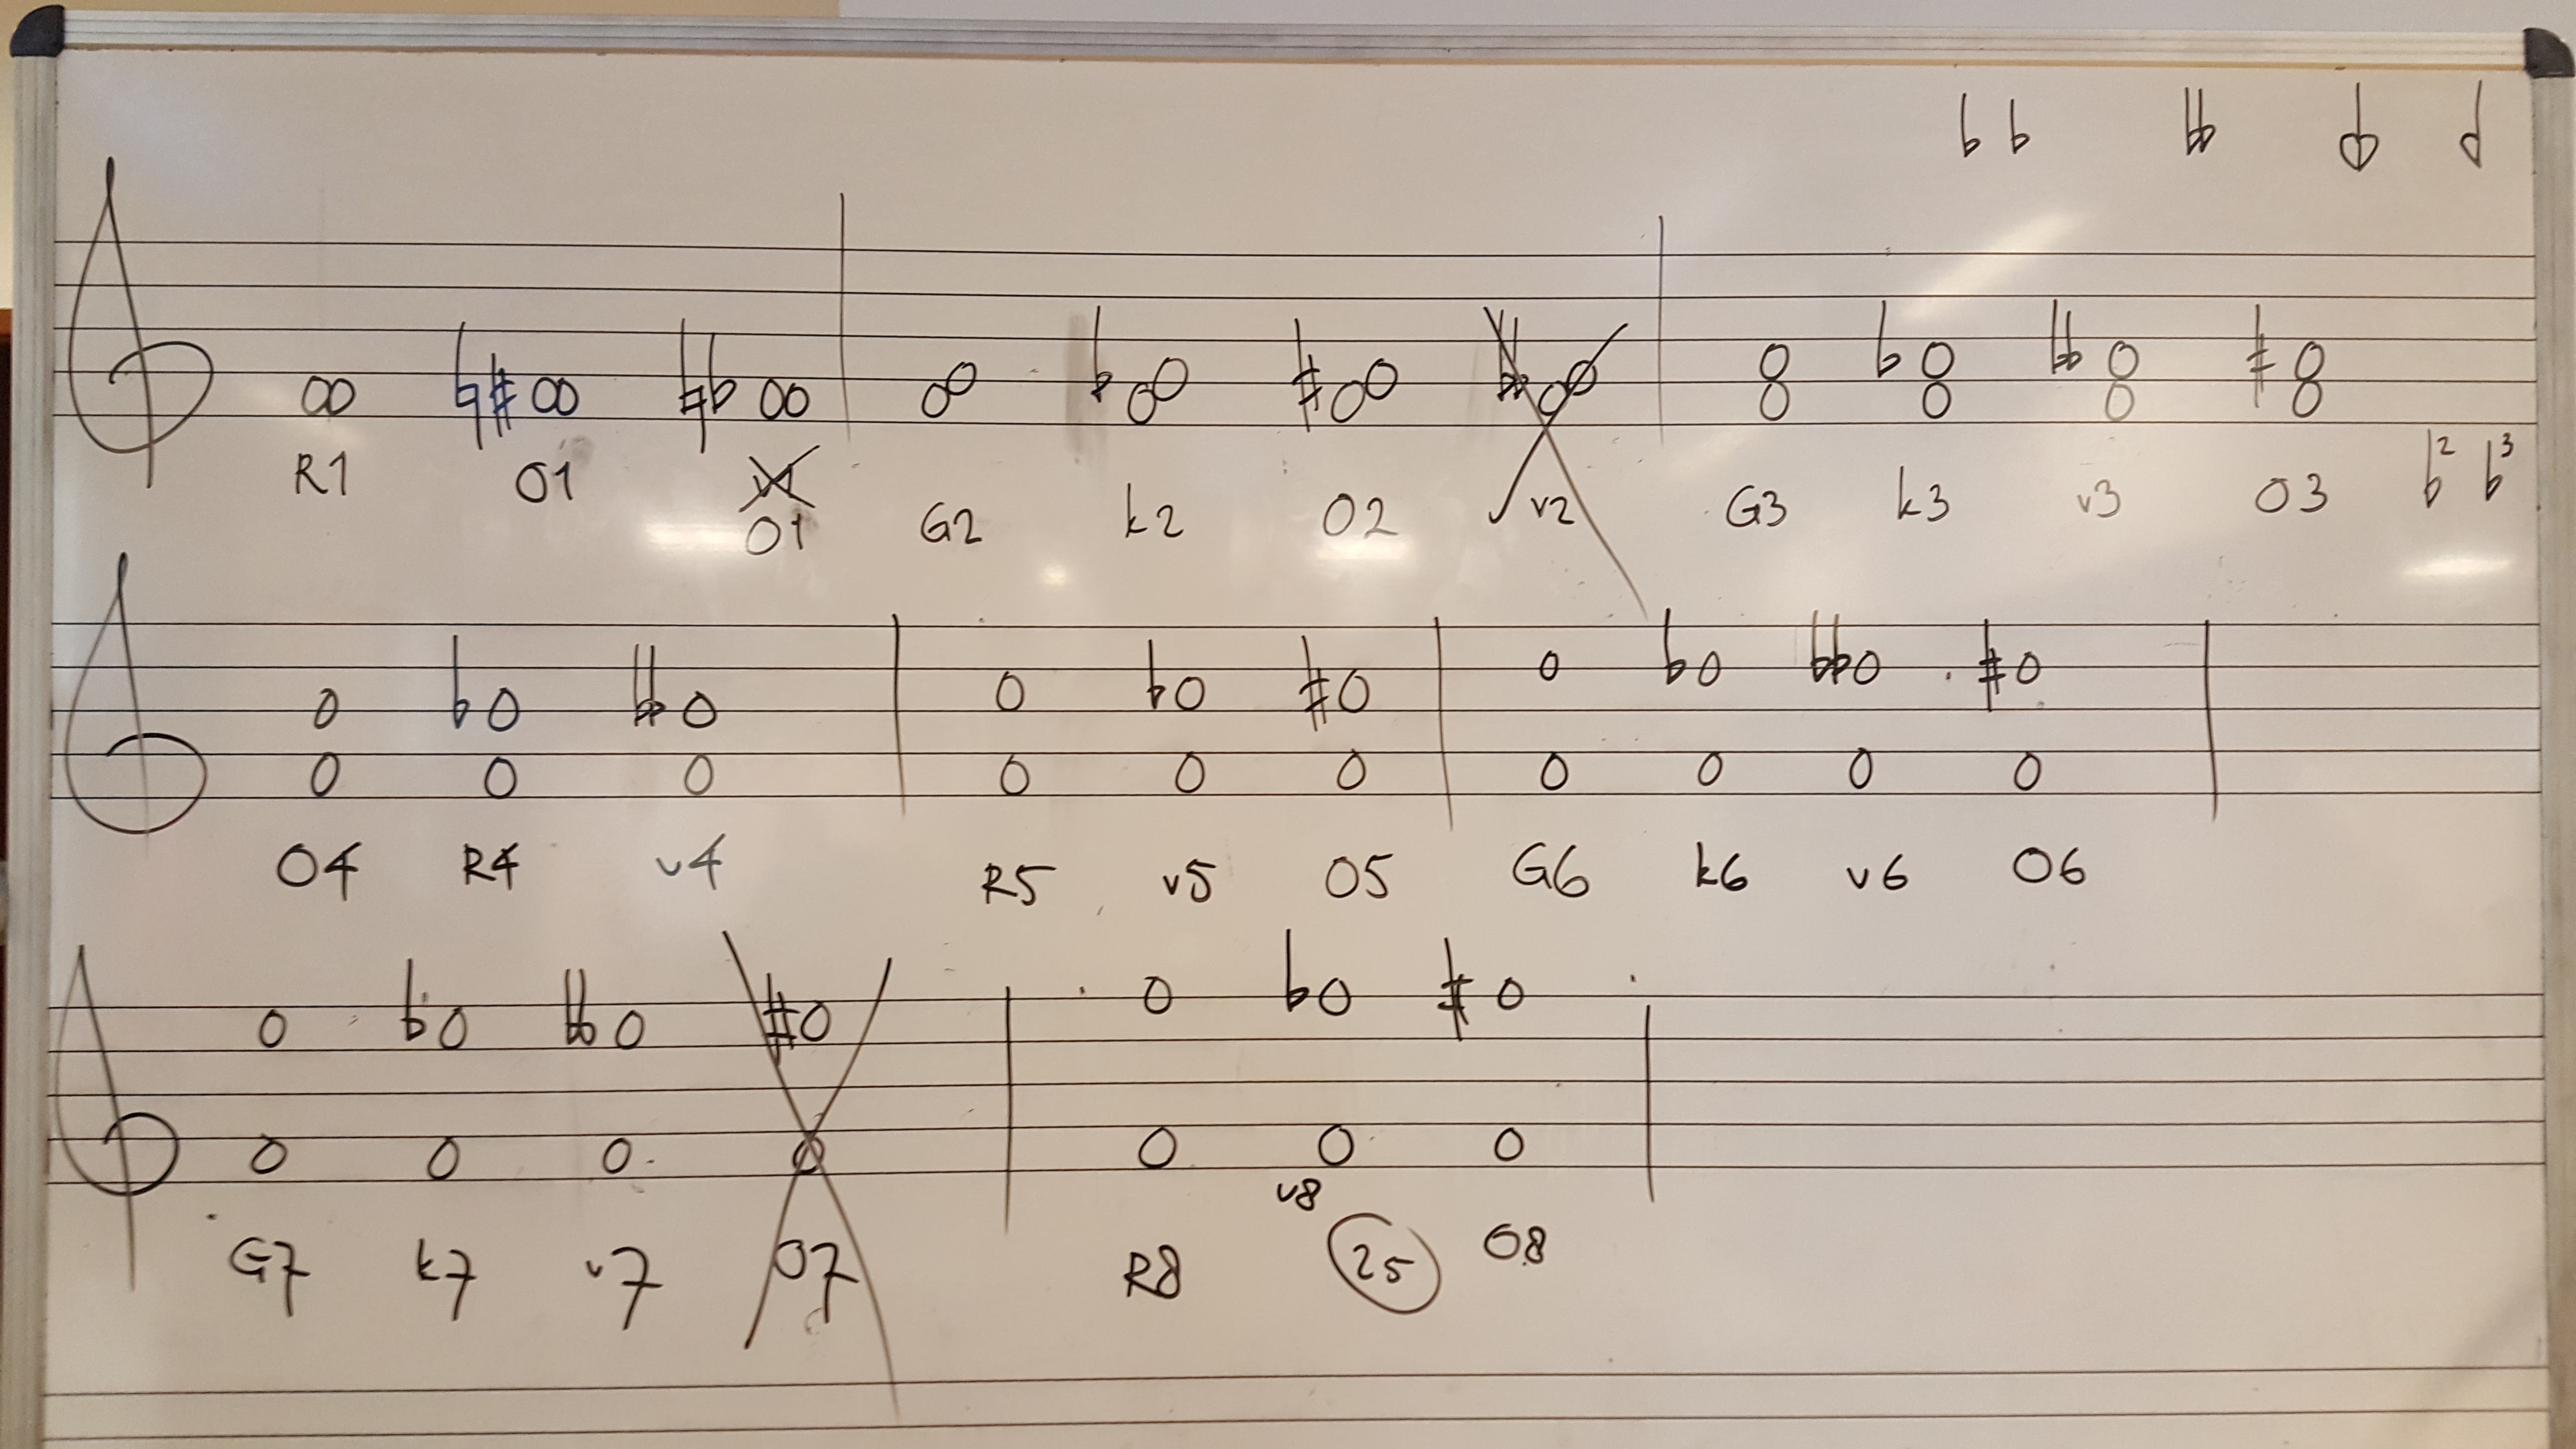 ♭ ♭ 𝄫
R1 O1 O1 G2 k2 O2 v2 G3 k3 v3 O3 ♭² ♭³
O4 R4 v4 R5 v5 O5 G6 k6 v6 O6
G7 k7 v7 O7 R8 v8 25 O8